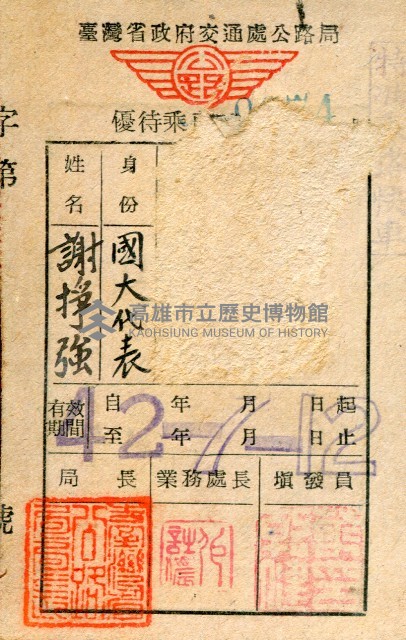 臺灣省政府交通處公路局
優待乘
字第
號
姓名
謝掙強
身份
國大代表
高雄市立歷史博物館
KAOHSIUNG MUSEUM OF HISTORY
有效期間
自 年 月 日起
至 年 月 日止
42-7-12
局長
業務處長
填發員